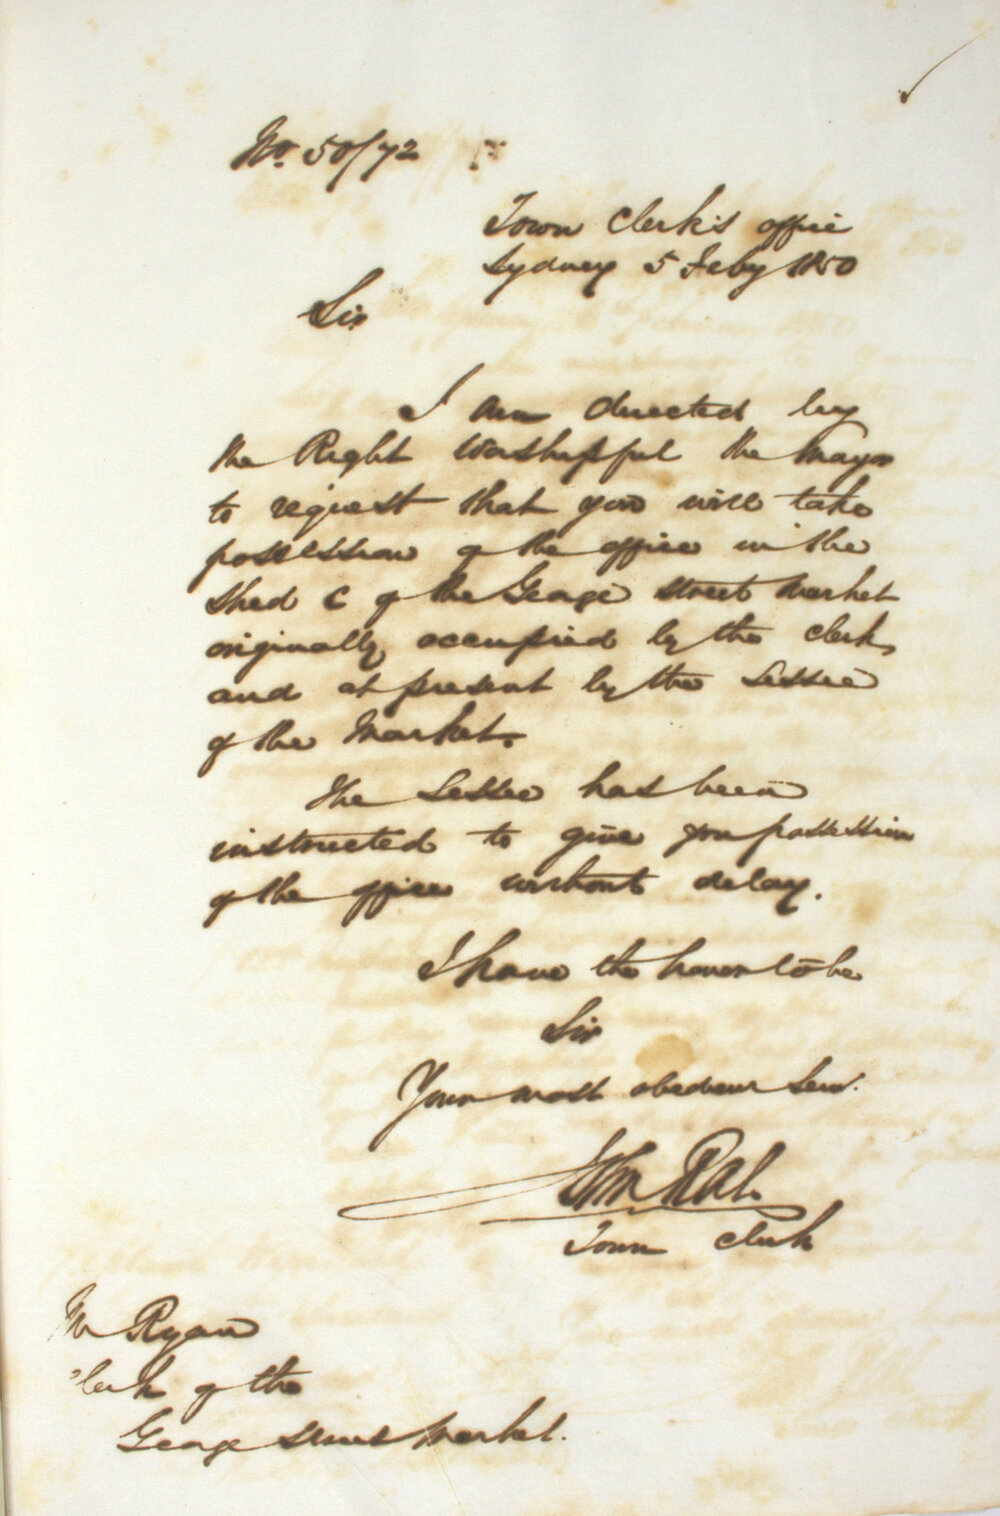 No. 50/72
Town Clerk's office
Sydney 5 Feby 1850
Sir
I am directed by
the Right Worshipful the Mayor
to request that you will take
possession of the office in the
Shed C of the George Street Market
originally occupied by the clerk,
and at present by the Lessee
of the Market.
The Lessee has been
instructed to give you possession
of the office without delay.
I have the honor to be
Sir
Your most obedient Serv.
Town Clerk
Mr Ryan
Clerk of the
George Street Market.